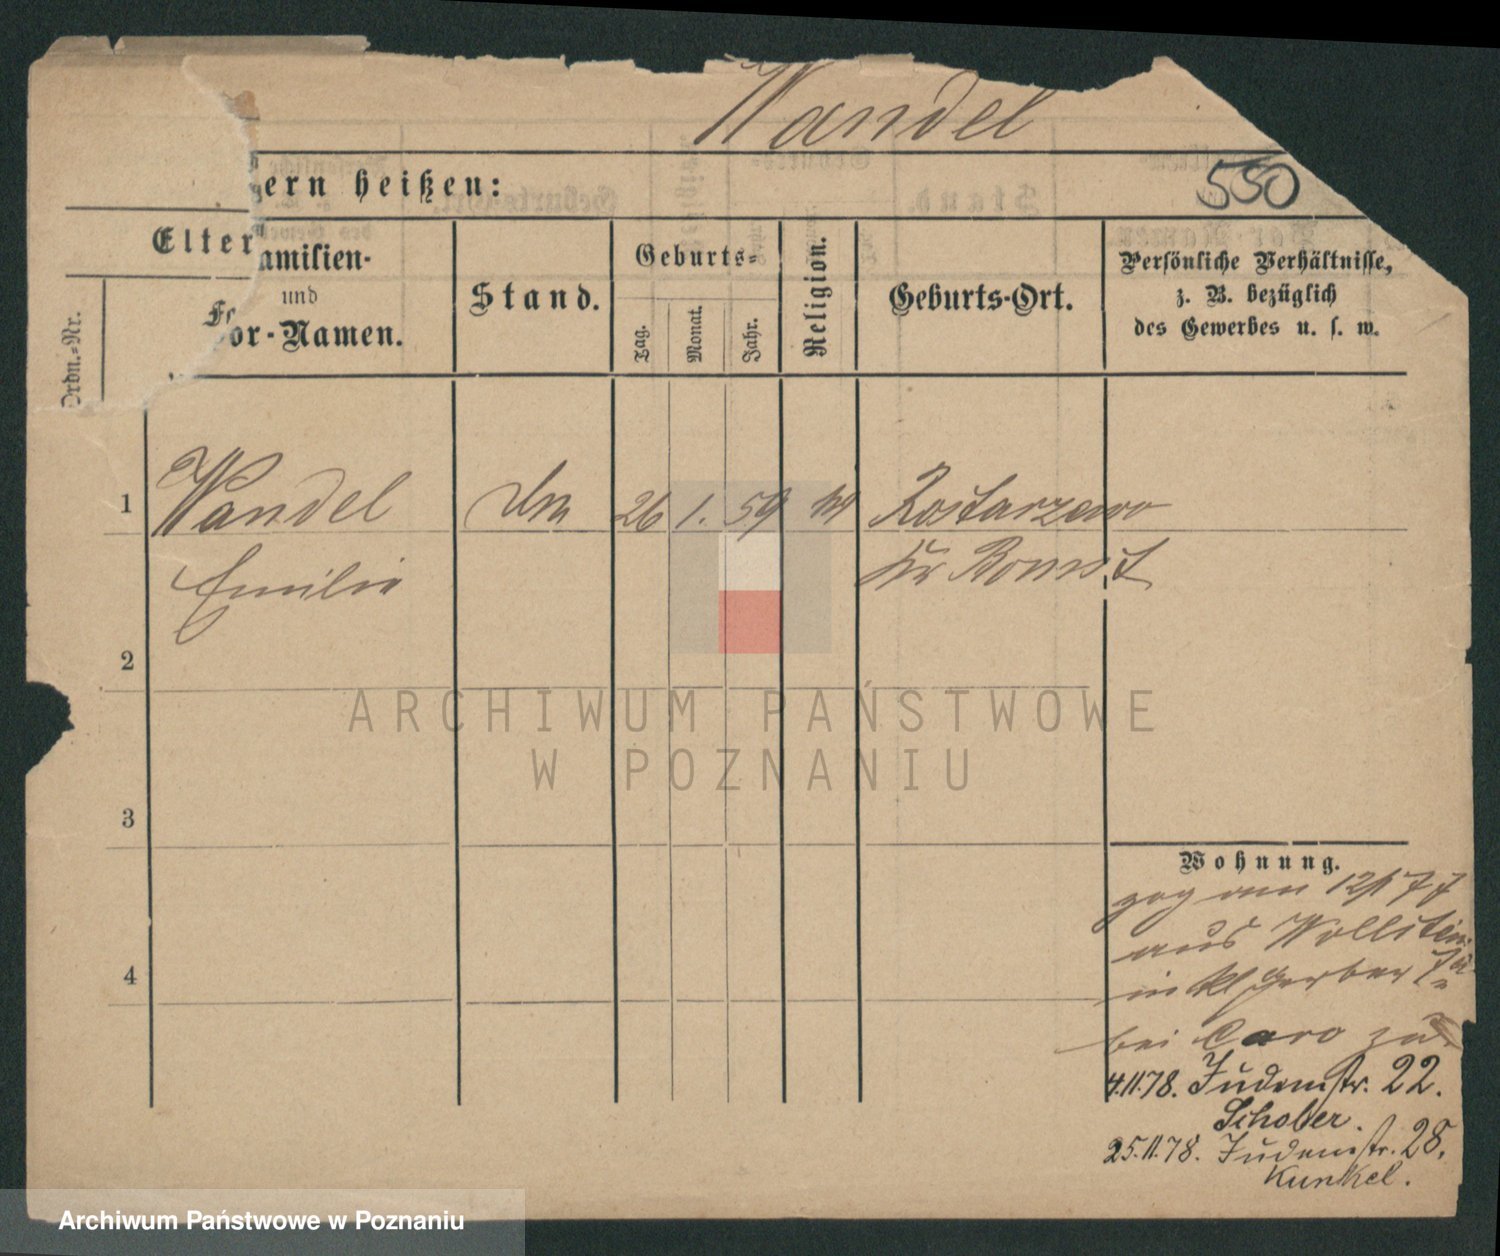 Wandel
550
ern heißen:
Elter
amilien-
und
or-Namen.
Ordn.-Nr.
Stand.
Geburts-
Tag.
Monat.
Jahr.
Religion.
Geburts-Ort.
Persönliche Verhältnisse,
z. B. bezüglich
des Gewerbes u. s. w.
1
Wandel
26 1. 59
Rostarzewo
Emilie
Kr Bomst
2
3
4
Wohnung.
zog am 12/1 77
aus Wollstein
in kl Gerber
bei Caro zu
4.11.78. Judenstr. 22.
Schober.
25.11.78. Judenstr. 28.
Kunkel.
ARCHIWUM PAŃSTWOWE
W POZNANIU
Archiwum Państwowe w Poznaniu